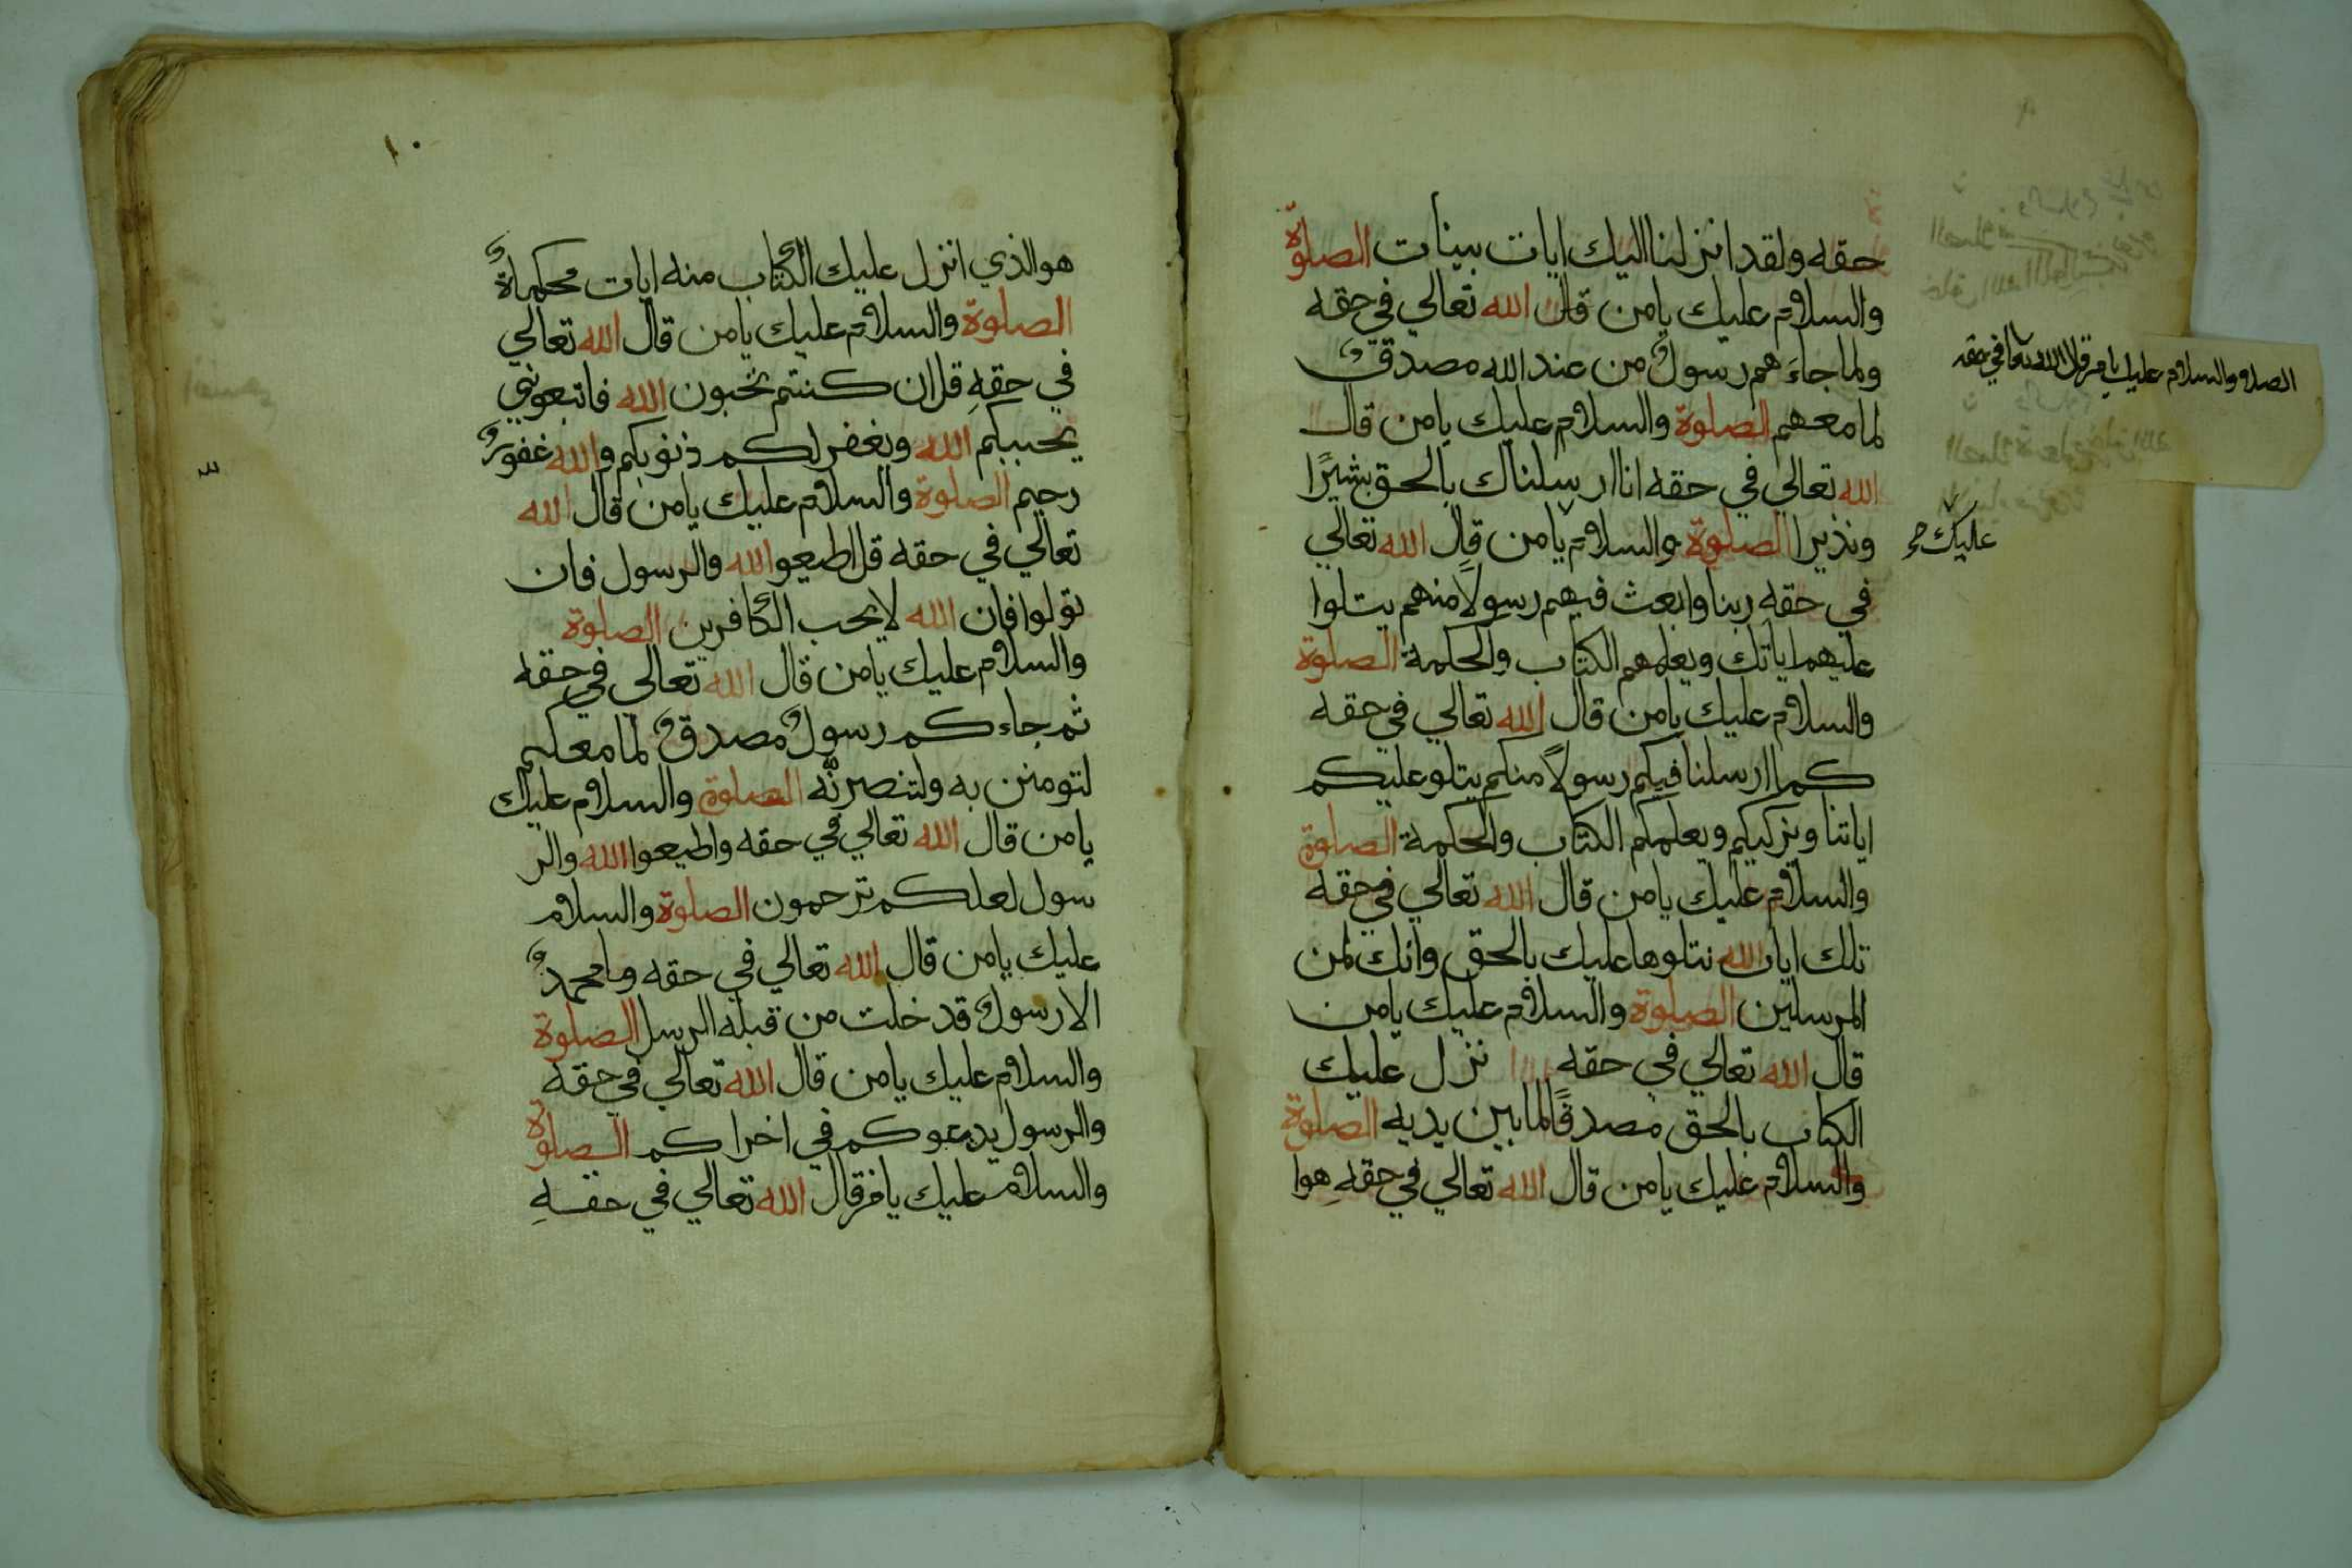 حقه ولقد انزلنا اليك ايات بينات الصلوة
والسلام عليك يامن قال الله تعالي في حقه
ولما جاءهم رسول من عند الله مصدق
لما معهم الصلوة والسلام عليك يامن قال
الله تعالي في حقه انا ارسلناك بالحق بشيرًا
ونذيرا الصلوة والسلام يامن قال الله تعالي
في حقه ربنا وابعث فيهم رسولًا منهم يتلوا
عليهم اياتك ويعلمهم الكتاب والحكمة الصلوة
والسلام عليك يامن قال الله تعالي في حقه
كما ارسلنا فيكم رسولًا منكم يتلو عليكم
اياتنا ويزكيكم ويعلمكم الكتاب والحكمة الصلوة
والسلام عليك يامن قال الله تعالي في حقه
تلك ايات الله نتلوها عليك بالحق وانك لمن
المرسلين الصلوة والسلام عليك يامن
قال الله تعالي في حقه نزل عليك
الكتاب بالحق مصدقًا لما بين يديه الصلوة
والسلام عليك يامن قال الله تعالي في حقهِ هوا
الصلوة والسلام عليك يامن قال الله تعا في حقه
عليك صح
١٠
هو الذي انزل عليك الكتاب منه ايات محكماةٌ
الصلوة والسلام عليك يامن قال الله تعالي
في حقهِ قل ان كنتم تحبون الله فاتبعوني
يحببكم الله ويغفر لكم ذنوبكم والله غفورٌ
رحيم الصلوة والسلام عليك يامن قال الله
تعالي في حقه قل اطيعوا الله والرسول فان
تولوا فان الله لا يحب الكافرين الصلوة
والسلام عليك يامن قال الله تعالي في حقه
ثم جاءكم رسولٌ مصدقٌ لما معكم
لتومنن به ولتنصرنّه الصلوة والسلام عليك
يامن قال الله تعالي في حقه واطيعوا الله والر
سول لعلكم ترحمون الصلوة والسلام
عليك يامن قال الله تعالي في حقه وما محمدٌ
الا رسولٌ قد خلت من قبله الرسل الصلوة
والسلام عليك يامن قال الله تعالي في حقه
والرسول يدعوكم في اخراكم الصلوة
والسلام عليك يامن قال الله تعالي في حقهِ